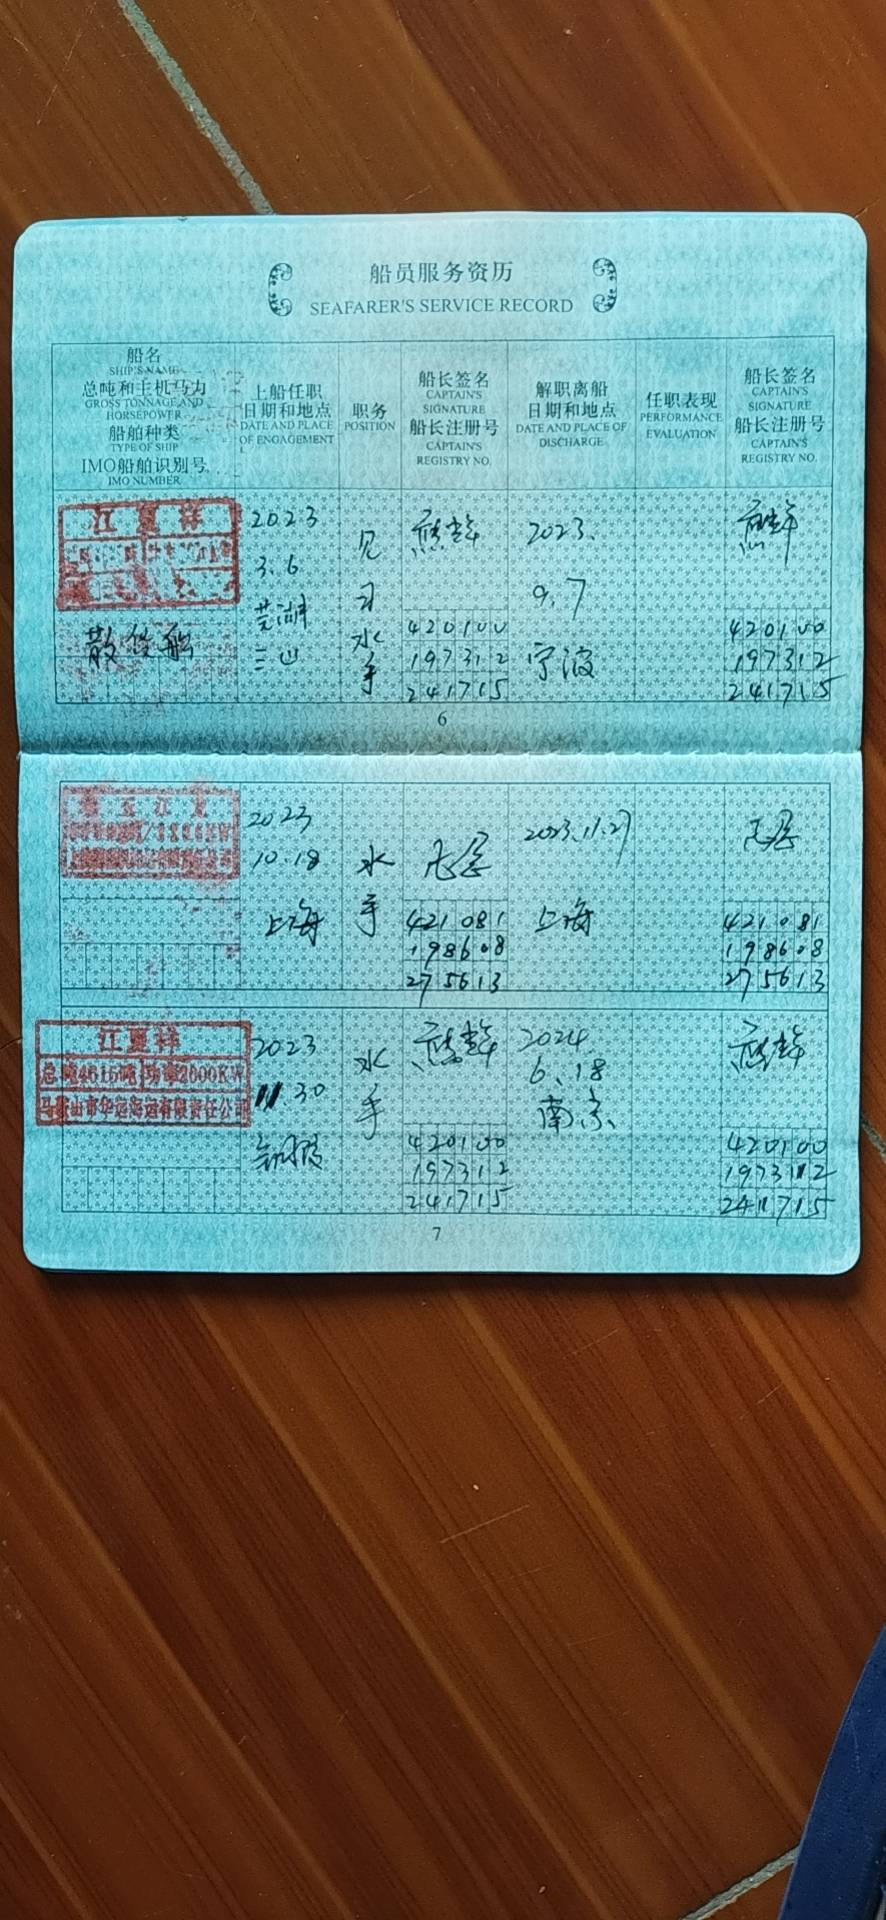 船员服务资历
SEAFARER'S SERVICE RECORD
船名
SHIP'S NAME
总吨和主机马力
GROSS TONNAGE AND
HORSEPOWER
船舶种类
TYPE OF SHIP
IMO船舶识别号
IMO NUMBER
上船任职
日期和地点
DATE AND PLACE
OF ENGAGEMENT
职务
POSITION
船长签名
CAPTAIN'S
SIGNATURE
船长注册号
CAPTAIN'S
REGISTRY NO.
解职离船
日期和地点
DATE AND PLACE OF
DISCHARGE
任职表现
PERFORMANCE
EVALUATION
船长签名
CAPTAIN'S
SIGNATURE
船长注册号
CAPTAIN'S
REGISTRY NO.
江夏祥
散货船
2023
3.6
芜湖
三山
见
习
水
手
420100
197312
241715
2023.
9.7
宁波
420100
197312
241715
6
2023
10.18
上海
水
手
421081
198608
275613
2023.11.27
上海
421081
198608
275613
江夏祥
总吨4615吨 功率2600KW
马鞍山市华运海运有限责任公司
2023
11 30
铜陵
水
手
420100
197312
241715
2024
6.18
南京
420100
197312
241715
7